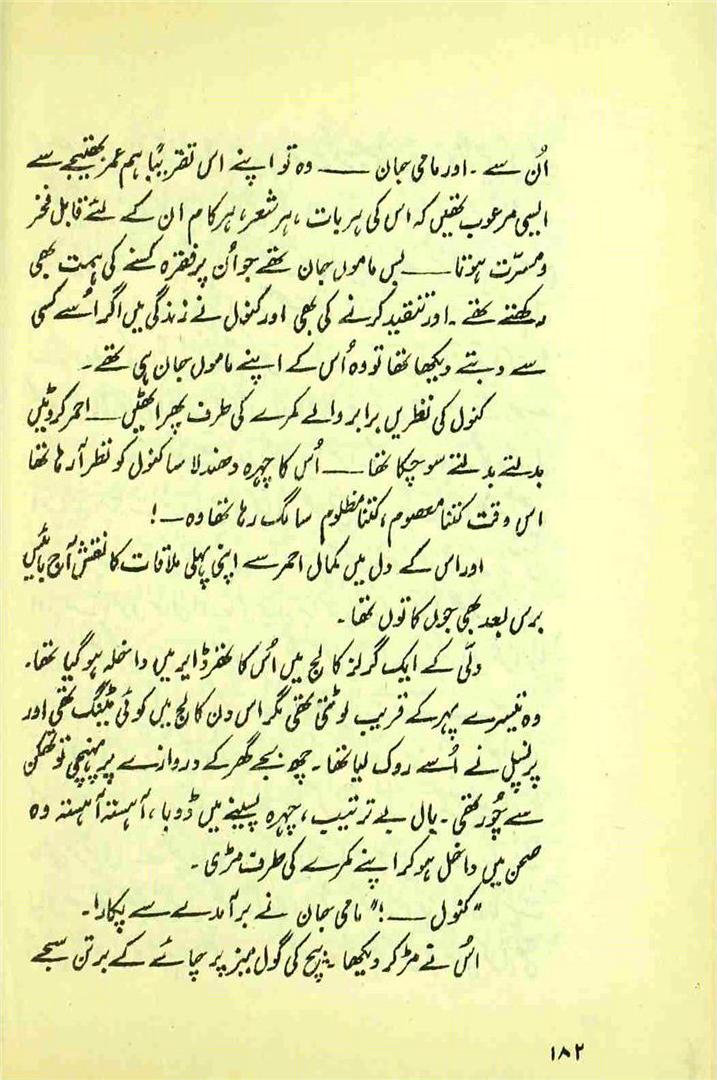 اُن سے ۔ اور مامی جان ــــ وہ تو اپنے اس تقریباً ہم عمر بھتیجے سے
ایسی مرعوب تھیں کہ اس کی ہر بات ، ہر شعر، ہر کام ان کے لئے قابل فخر
و مسرّت ہوتا ــــ بس ماموں جان تھے جو اُن پر فقرہ کسنے کی ہمت بھی
رکھتے تھے ۔ اور تنقید کرنے کی بھی اور کنول نے زندگی میں اگر اُسے کسی
سے دبتے دیکھا تھا تو وہ اُس کے اپنے ماموں جان ہی تھے ۔
کنول کی نظریں برابر والے کمرے کی طرف پھر اٹھیں ــــ احمر کروٹیں
بدلتے بدلتے سو چکا تھا ــــ اُس کا چہرہ دھندلا سا کنول کو نظر آ رہا تھا
اس وقت کتنا معصوم ، کتنا مظلوم سا لگ رہا تھا وہ ــ !
اور اس کے دل میں کمال احمر سے اپنی پہلی ملاقات کا نقش آج بائیس
برس بعد بھی جوں کا توں تھا ۔
دلّی کے ایک گرلز کالج میں اُس کا تھرڈ ایر میں داخلہ ہو گیا تھا۔
وہ تیسرے پہر کے قریب لوٹتی تھی مگر اس دن کالج میں کوئی میٹنگ تھی اور
پرنسپل نے اُسے روک لیا تھا ۔ چھ بجے گھر کے دروازے پر پہنچی تو تھکن
سے چُور تھی ۔ بال بے ترتیب ، چہرہ پسینے میں ڈوبا ، آہستہ آہستہ وہ
صحن میں داخل ہو کر اپنے کمرے کی طرف مڑی ۔
" کنول ــــ !" مامی جان نے برآمدے سے پکارا ۔
اُس نے مڑ کر دیکھا ۔ بیچ کی گول میز پر چائے کے برتن سجے
۱۸۲